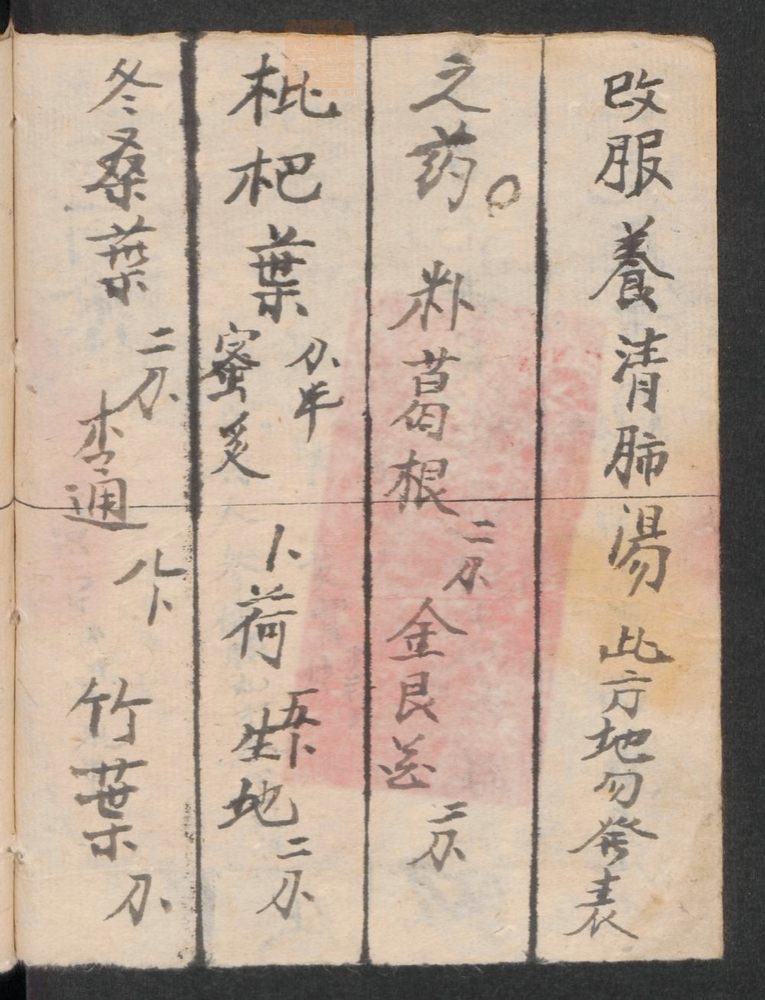 改服養清肺湯此方地勿發表
之药。 朴葛根二分金艮花二分
枇杷葉分半蜜炙卜荷五卜生地二分
冬桑葉二分 通 八卜 竹葉分